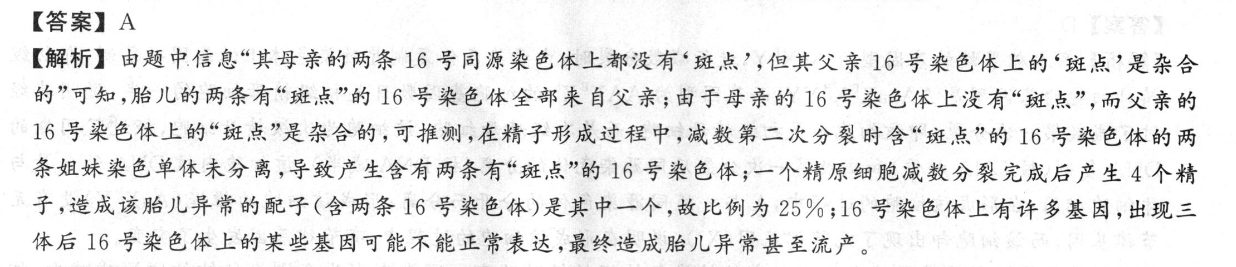 【答案】A
【解析】由题中信息“其母亲的两条16号同源染色体上都没有‘斑点’,但其父亲16号染色体上的‘斑点’是杂合
的”可知,胎儿的两条有“斑点”的16号染色体全部来自父亲;由于母亲的16号染色体上没有“斑点”,而父亲的
16号染色体上的“斑点”是杂合的,可推测,在精子形成过程中,减数第二次分裂时含“斑点”的16号染色体的两
条姐妹染色单体未分离,导致产生含有两条有“斑点”的16号染色体;一个精原细胞减数分裂完成后产生4个精
子,造成该胎儿异常的配子(含两条16号染色体)是其中一个,故比例为25%;16号染色体上有许多基因,出现三
体后16号染色体上的某些基因可能不能正常表达,最终造成胎儿异常甚至流产。